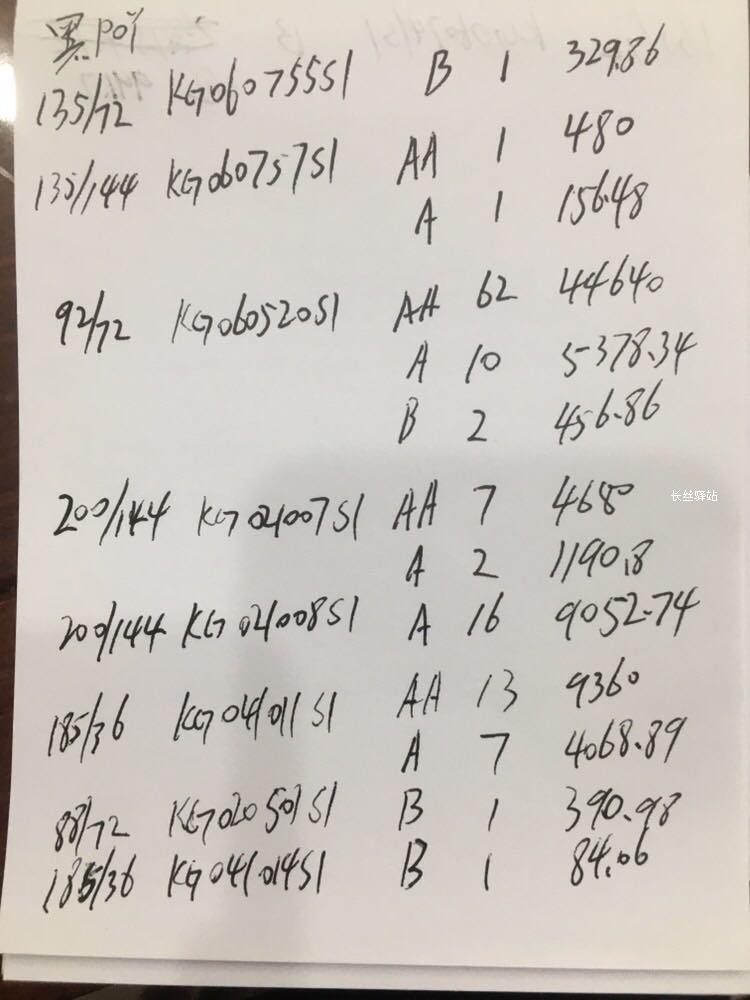 黑POY
135/72 KG060755S1 B 1 329.86
135/144 KG060757S1 AA 1 480
A 1 156.48
92/72 KG060520S1 AA 62 44640
A 10 5378.34
B 2 456.86
200/144 KG021007S1 AA 7 4680
A 2 1190.8
200/144 KG021008S1 A 16 9052.74
185/36 KG041011S1 AA 13 9360
A 7 4068.89
88/72 KG020501S1 B 1 390.98
185/36 KG041014S1 B 1 84.06
长丝驿站